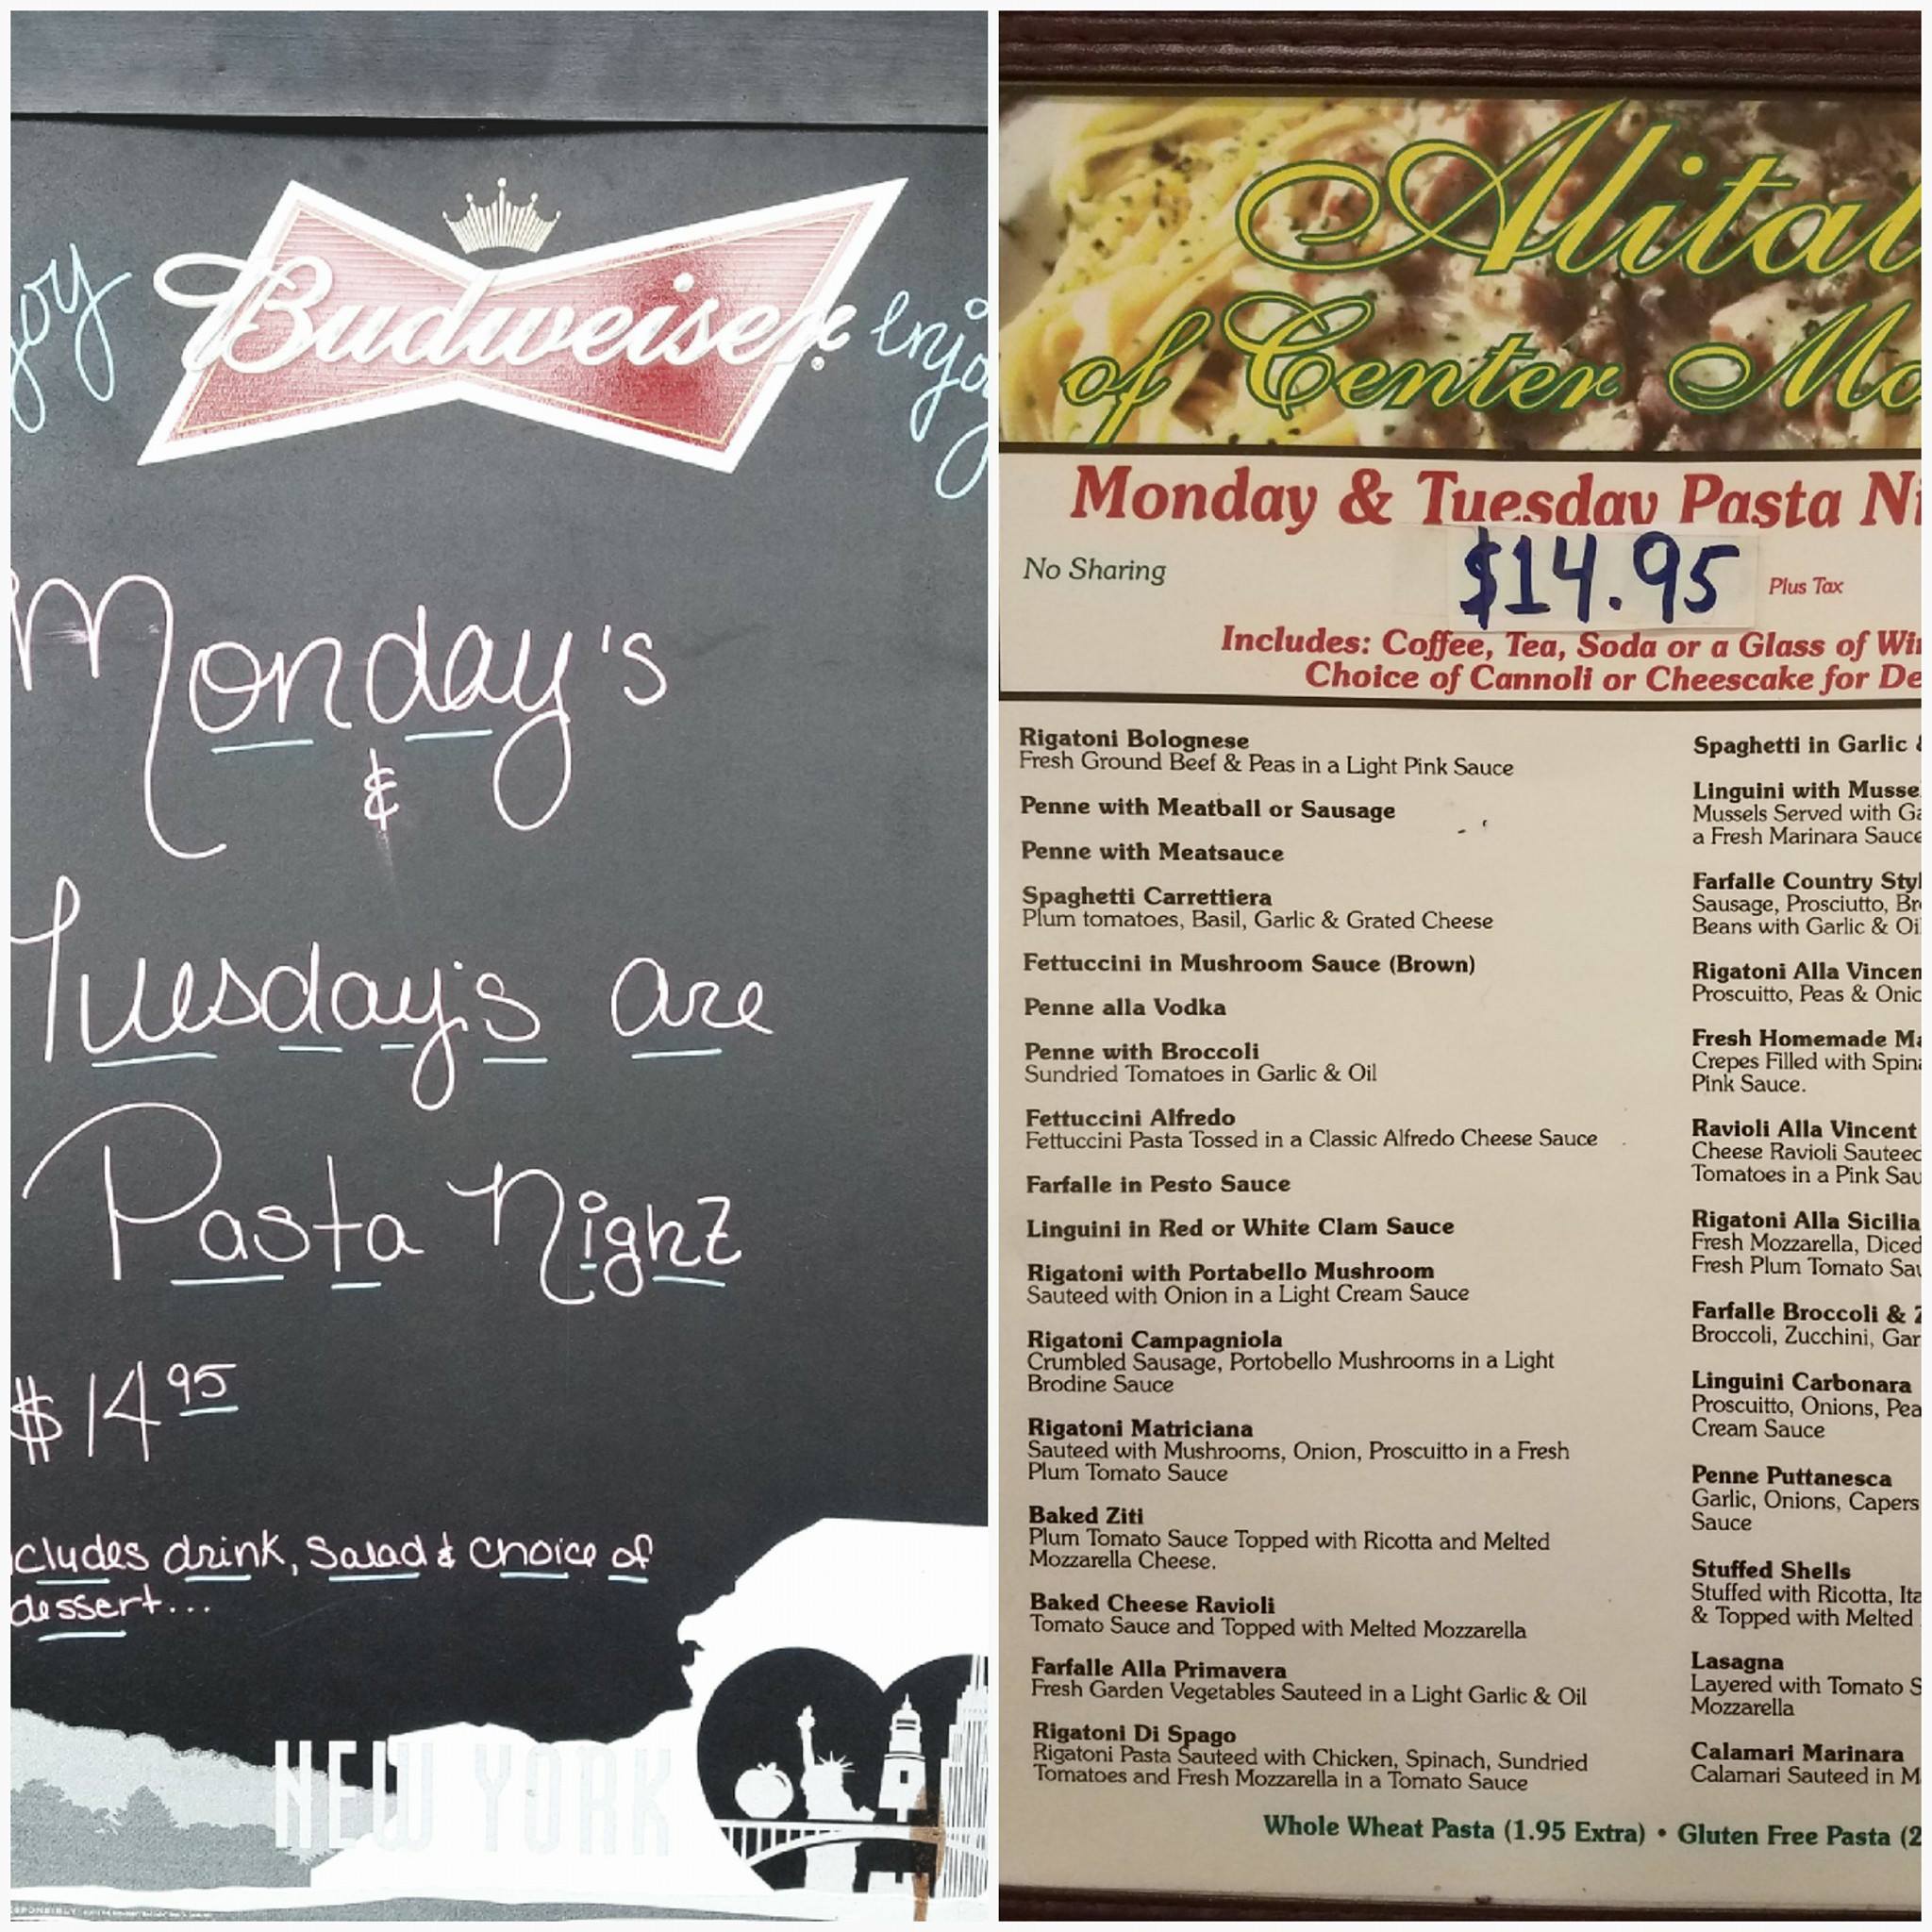 joy
Budweiser
enjo
Monday's
&
Tuesday's are
Pasta Night
$14 95
cludes drink, Salad & Choice of
dessert...
NEW YORK
Alital
of Center Mo
Monday & Tuesday Pasta Ni
No Sharing
$14.95
Plus Tax
Includes: Coffee, Tea, Soda or a Glass of Wi
Choice of Cannoli or Cheescake for De
Rigatoni Bolognese
Fresh Ground Beef & Peas in a Light Pink Sauce
Penne with Meatball or Sausage
Penne with Meatsauce
Spaghetti Carrettiera
Plum tomatoes, Basil, Garlic & Grated Cheese
Fettuccini in Mushroom Sauce (Brown)
Penne alla Vodka
Penne with Broccoli
Sundried Tomatoes in Garlic & Oil
Fettuccini Alfredo
Fettuccini Pasta Tossed in a Classic Alfredo Cheese Sauce
Farfalle in Pesto Sauce
Linguini in Red or White Clam Sauce
Rigatoni with Portabello Mushroom
Sauteed with Onion in a Light Cream Sauce
Rigatoni Campagniola
Crumbled Sausage, Portobello Mushrooms in a Light
Brodine Sauce
Rigatoni Matriciana
Sauteed with Mushrooms, Onion, Proscuitto in a Fresh
Plum Tomato Sauce
Baked Ziti
Plum Tomato Sauce Topped with Ricotta and Melted
Mozzarella Cheese.
Baked Cheese Ravioli
Tomato Sauce and Topped with Melted Mozzarella
Farfalle Alla Primavera
Fresh Garden Vegetables Sauteed in a Light Garlic & Oil
Rigatoni Di Spago
Rigatoni Pasta Sauteed with Chicken, Spinach, Sundried
Tomatoes and Fresh Mozzarella in a Tomato Sauce
Spaghetti in Garlic &
Linguini with Musse
Mussels Served with Ga
a Fresh Marinara Sauce
Farfalle Country Styl
Sausage, Prosciutto, Br
Beans with Garlic & Oi
Rigatoni Alla Vincen
Proscuitto, Peas & Onio
Fresh Homemade Ma
Crepes Filled with Spina
Pink Sauce.
Ravioli Alla Vincent
Cheese Ravioli Sauteed
Tomatoes in a Pink Sau
Rigatoni Alla Sicilia
Fresh Mozzarella, Diced
Fresh Plum Tomato Sau
Farfalle Broccoli & Z
Broccoli, Zucchini, Gar
Linguini Carbonara
Proscuitto, Onions, Pea
Cream Sauce
Penne Puttanesca
Garlic, Onions, Capers
Sauce
Stuffed Shells
Stuffed with Ricotta, Ita
& Topped with Melted
Lasagna
Layered with Tomato S
Mozzarella
Calamari Marinara
Calamari Sauteed in M
Whole Wheat Pasta (1.95 Extra) • Gluten Free Pasta (2